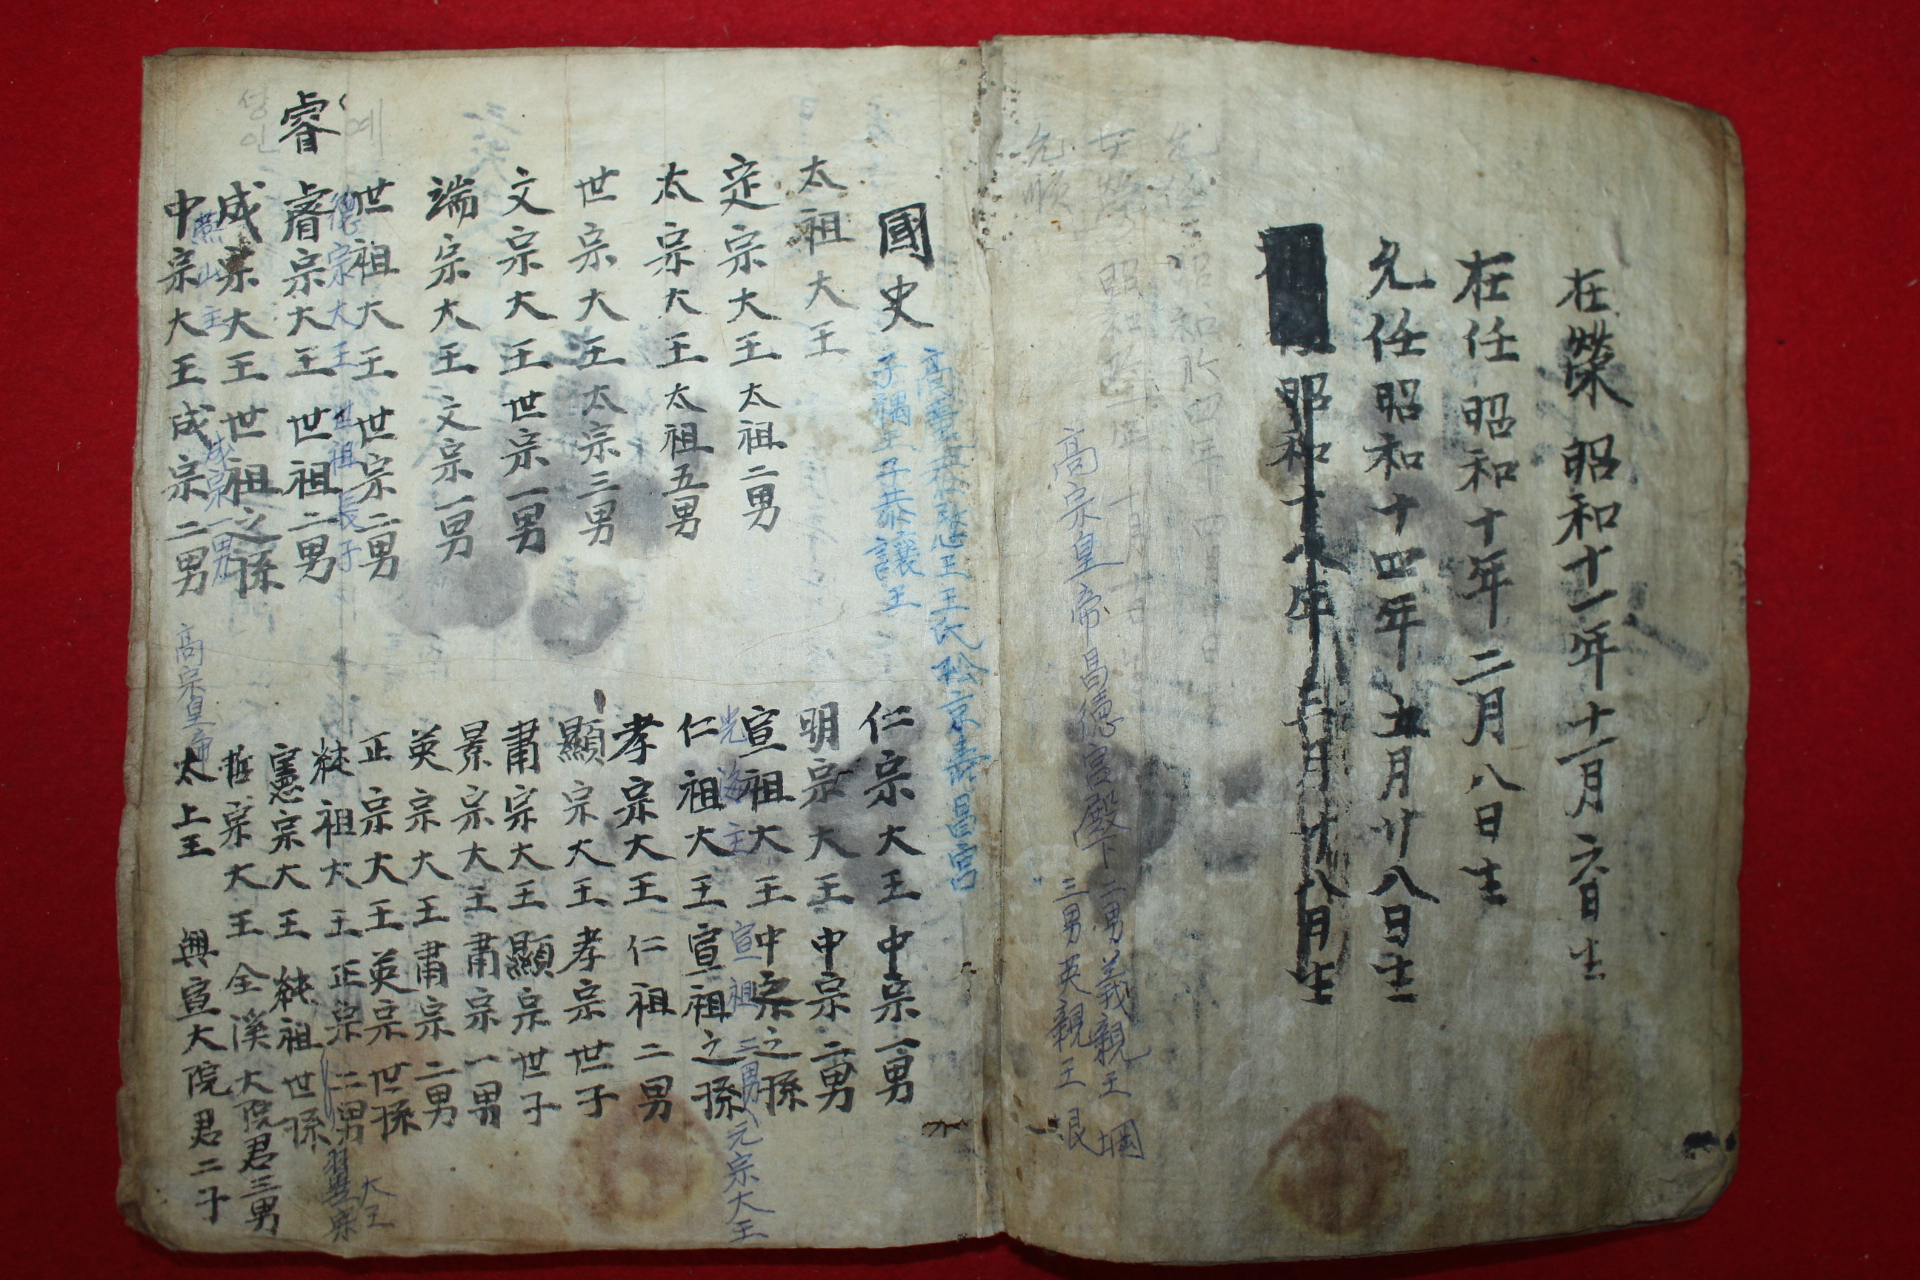 在榮 昭和十一年十一月六日生
在任 昭和十年二月八日生
允任 昭和十四年五月廿八日生
昭和十八年 月廿八月生
昭和 四年 四月 日
女榮 昭和 年 十月
允順
高宗皇帝昌德宮殿下二男義親王堈
三男英親王垠
高麗 王王氏松京壽昌宮
子禑王子恭讓王
國史
太祖大王
定宗大王 太祖二男
太宗大王 太祖五男
世宗大王 太宗三男
文宗大王 世宗一男
端宗大王 文宗一男
世祖大王 世宗二男
德宗大王 世祖長子
예
睿
睿宗大王 世祖二男
성
인
成宗大王 世祖之孫
燕山主 成宗一男
中宗大王 成宗二男
仁宗大王 中宗一男
明宗大王 中宗二男
宣祖大王 中宗之孫
光海主 宣祖二男
元宗大王
仁祖大王 宣祖之孫
孝宗大王 仁祖二男
顯宗大王 孝宗世子
肅宗大王 顯宗世子
景宗大王 肅宗一男
英宗大王 肅宗二男
正宗大王 英宗世孫
純祖大王 正宗二男
翼宗
大王
憲宗大王 純祖世孫
哲宗大王 全溪大院君三男
高宗皇帝
太上王 興宣大院君二子